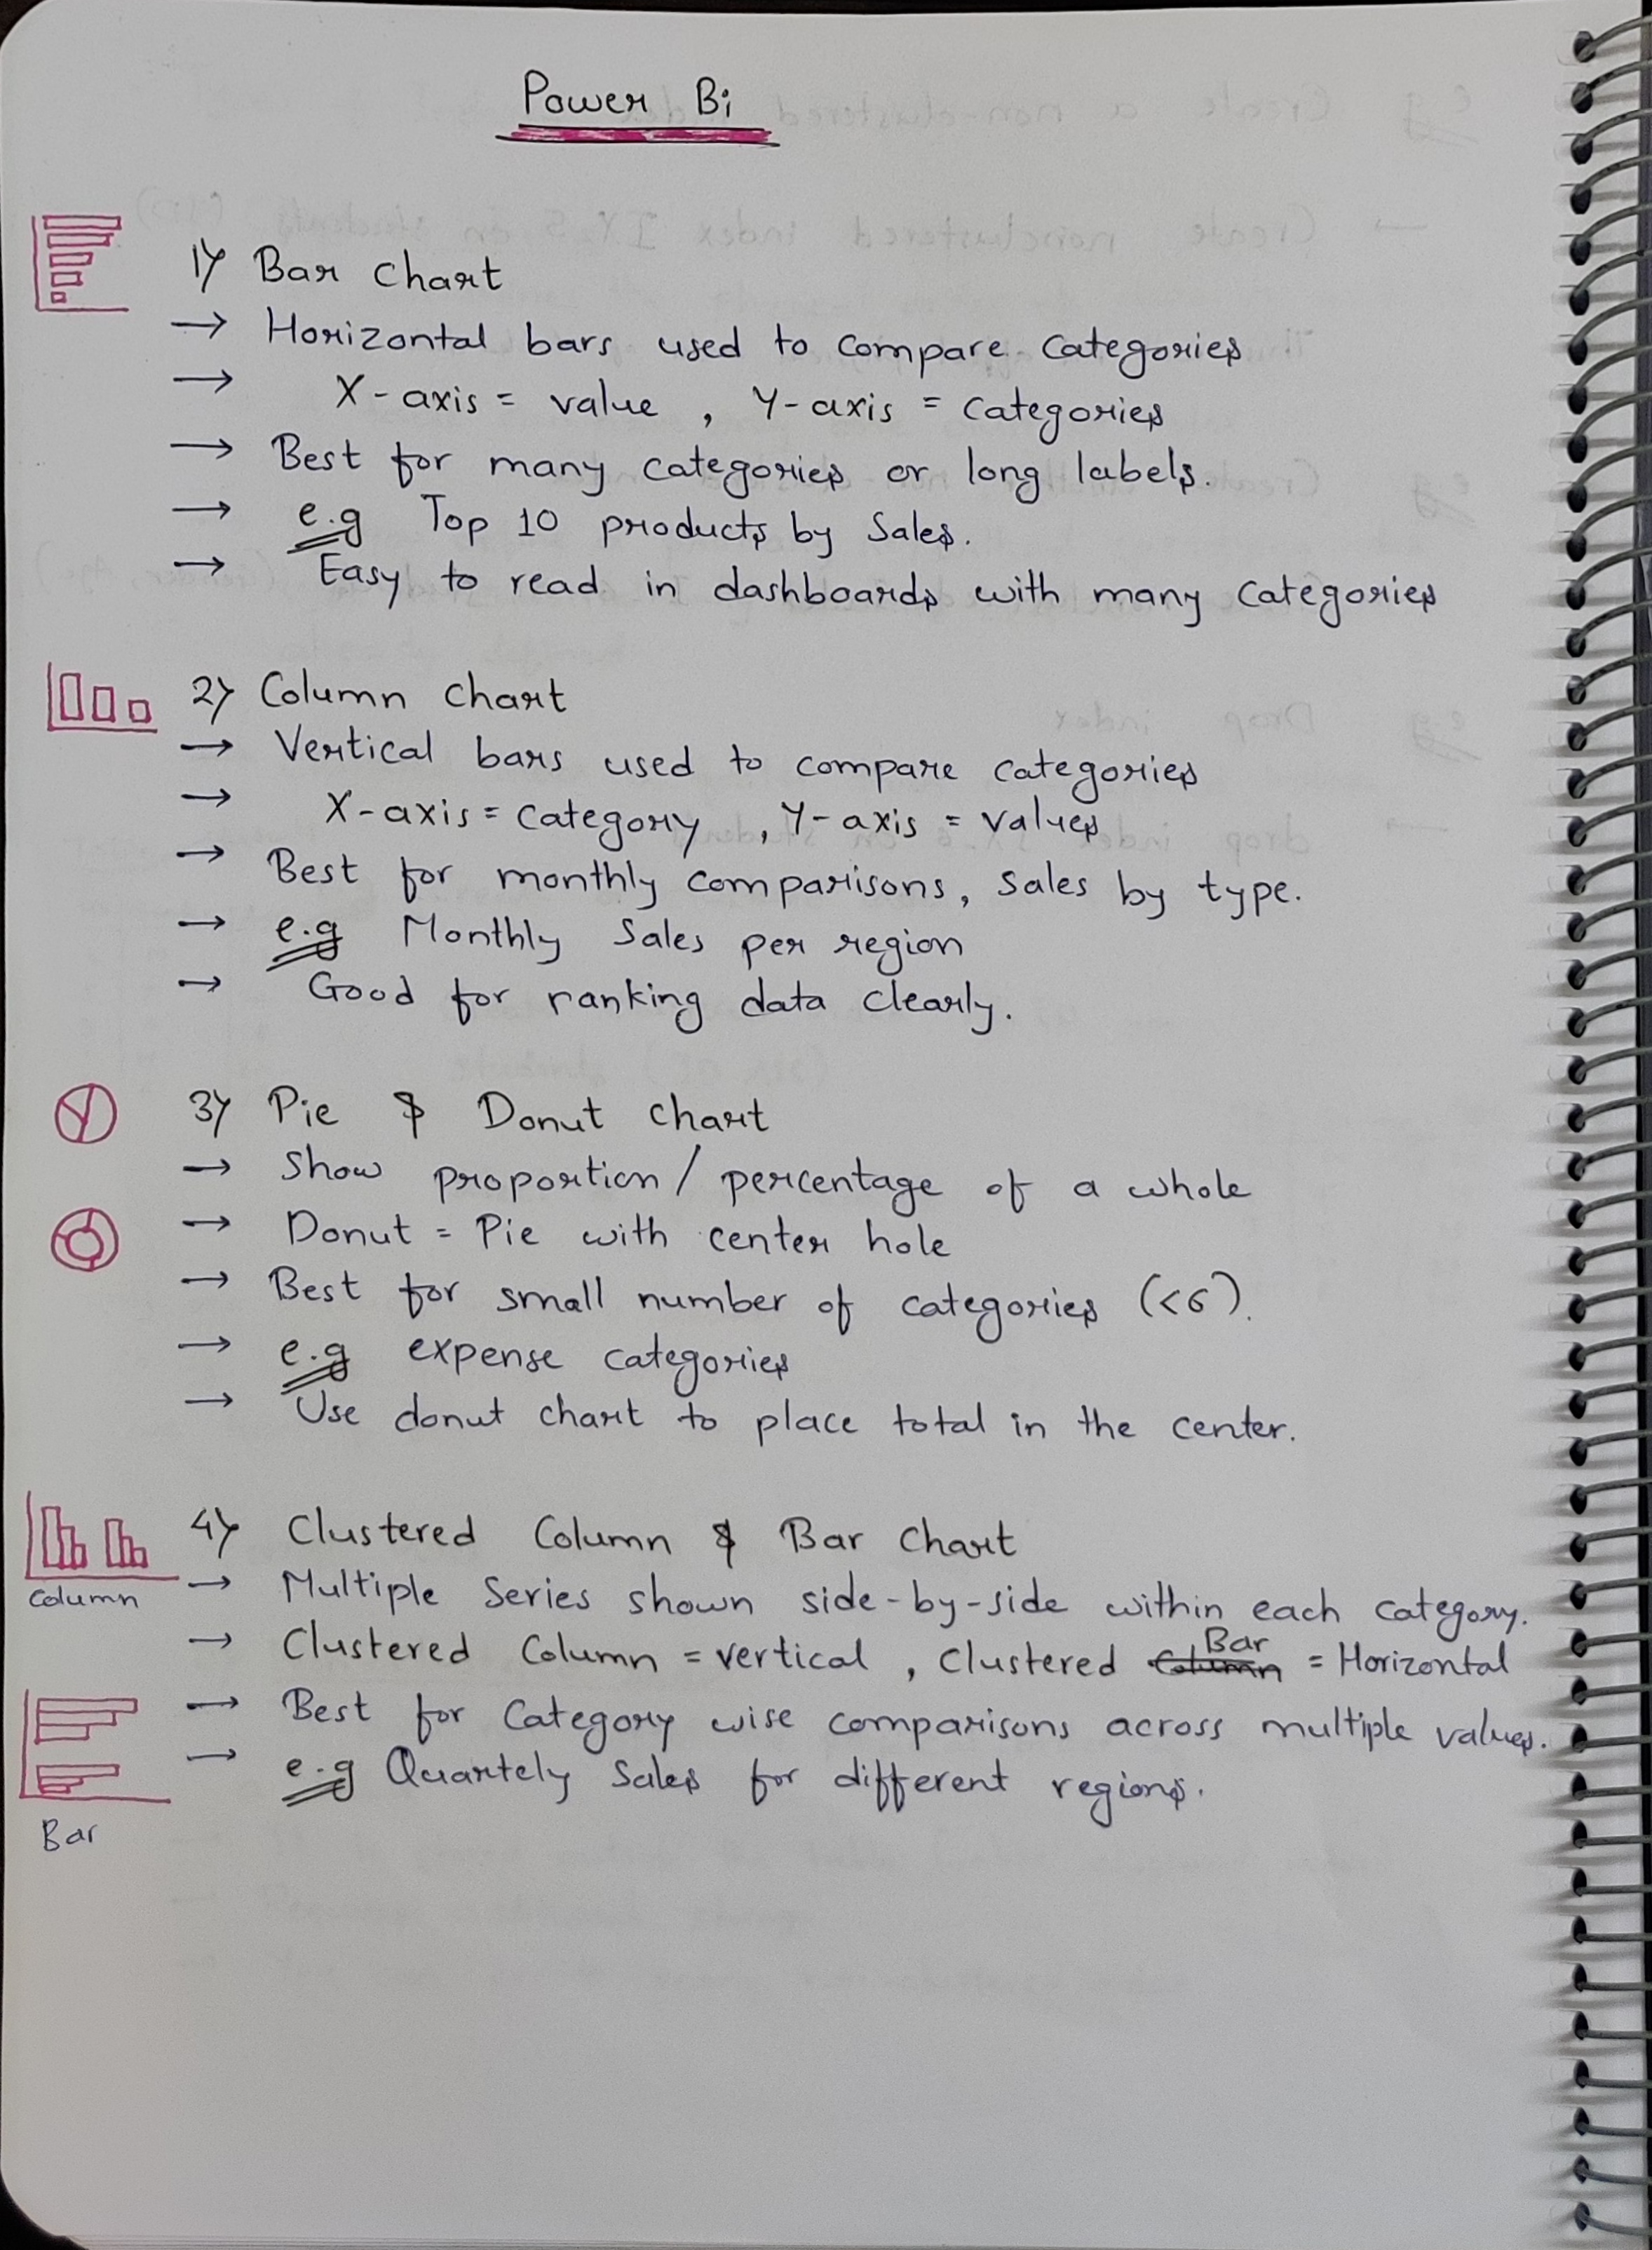 Power Bi
1) Bar Chart
→ Horizontal bars used to compare categories
→ X-axis = value , Y-axis = categories
→ Best for many categories or long labels.
→ e.g Top 10 products by Sales.
→ Easy to read in dashboards with many categories
2) Column Chart
→ Vertical bars used to compare categories
→ X-axis = category , Y-axis = values
→ Best for monthly comparisons, sales by type.
→ e.g Monthly Sales per region
→ Good for ranking data clearly.
3) Pie & Donut chart
→ Show proportion / percentage of a whole
→ Donut = Pie with center hole
→ Best for small number of categories (<6).
→ e.g expense categories
→ Use donut chart to place total in the center.
4) Clustered Column & Bar Chart
Column
→ Multiple Series shown side-by-side within each category.
→ Clustered Column = vertical , Clustered Bar = Horizontal
→ Best for Category wise comparisons across multiple values.
→ e.g Quartely Sales for different regions.
Bar